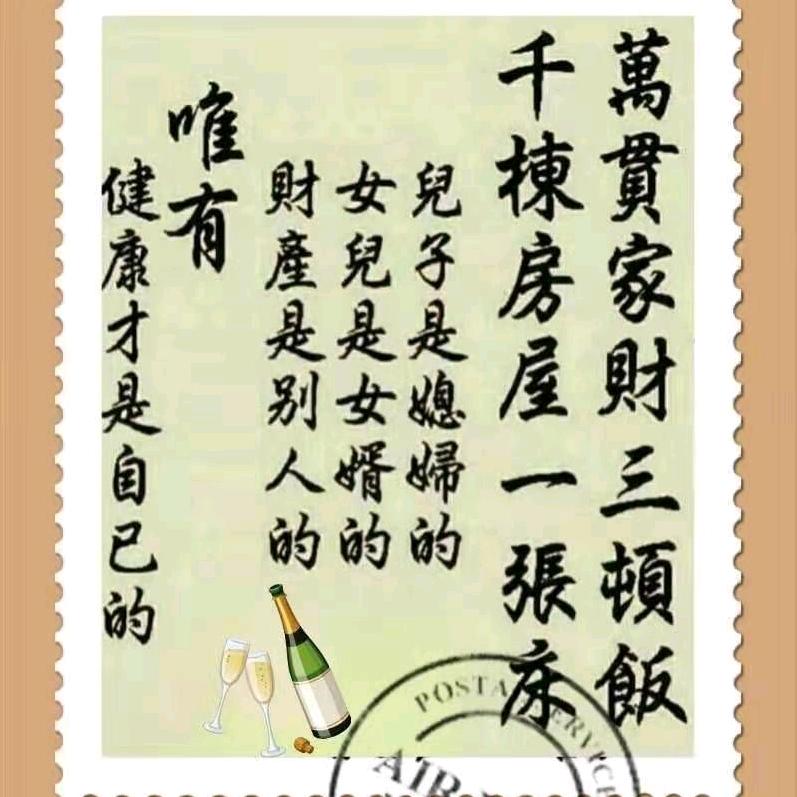 萬貫家財三頓飯
千棟房屋一張床
兒子是媳婦的
女兒是女婿的
財產是別人的
唯有
健康才是自己的
POSTAL SERVICE
AIR